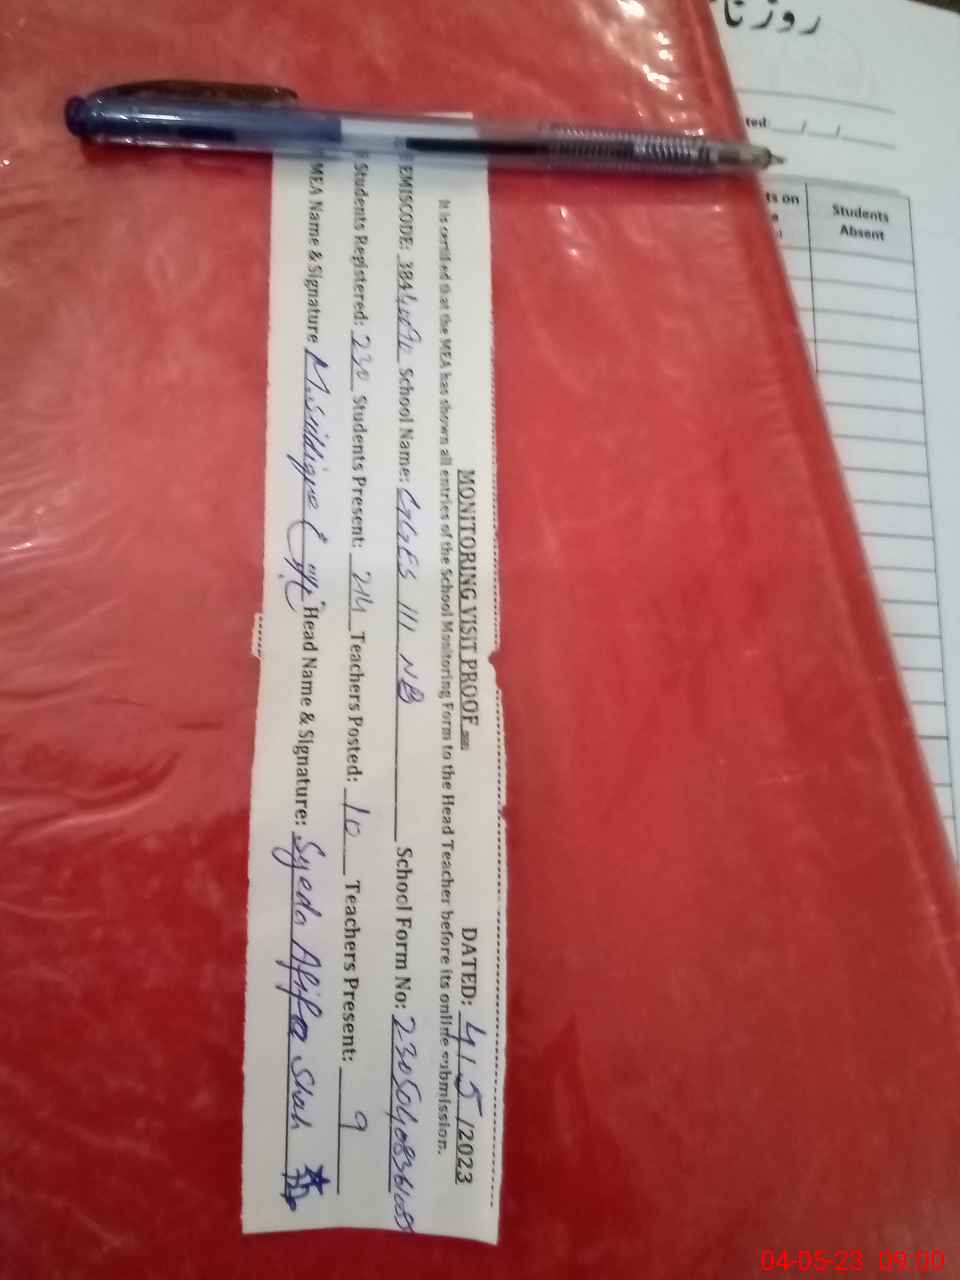 MONITORING VISIT PROOF DATED: 4/5/2023
It is certified that the MEA has shown all entries of the School Monitoring Form to the Head Teacher before its online submission.
EMISCODE: School Name: GGES 111 NB School Form No:
Students Registered: 230 Students Present: 214 Teachers Posted: 10 Teachers Present: 9
MEA Name & Signature M. Siddique Head Name & Signature: Syeda Afifa Shah
ted: __/__/__
ts on
Students
Absent
04-05-23 09:00